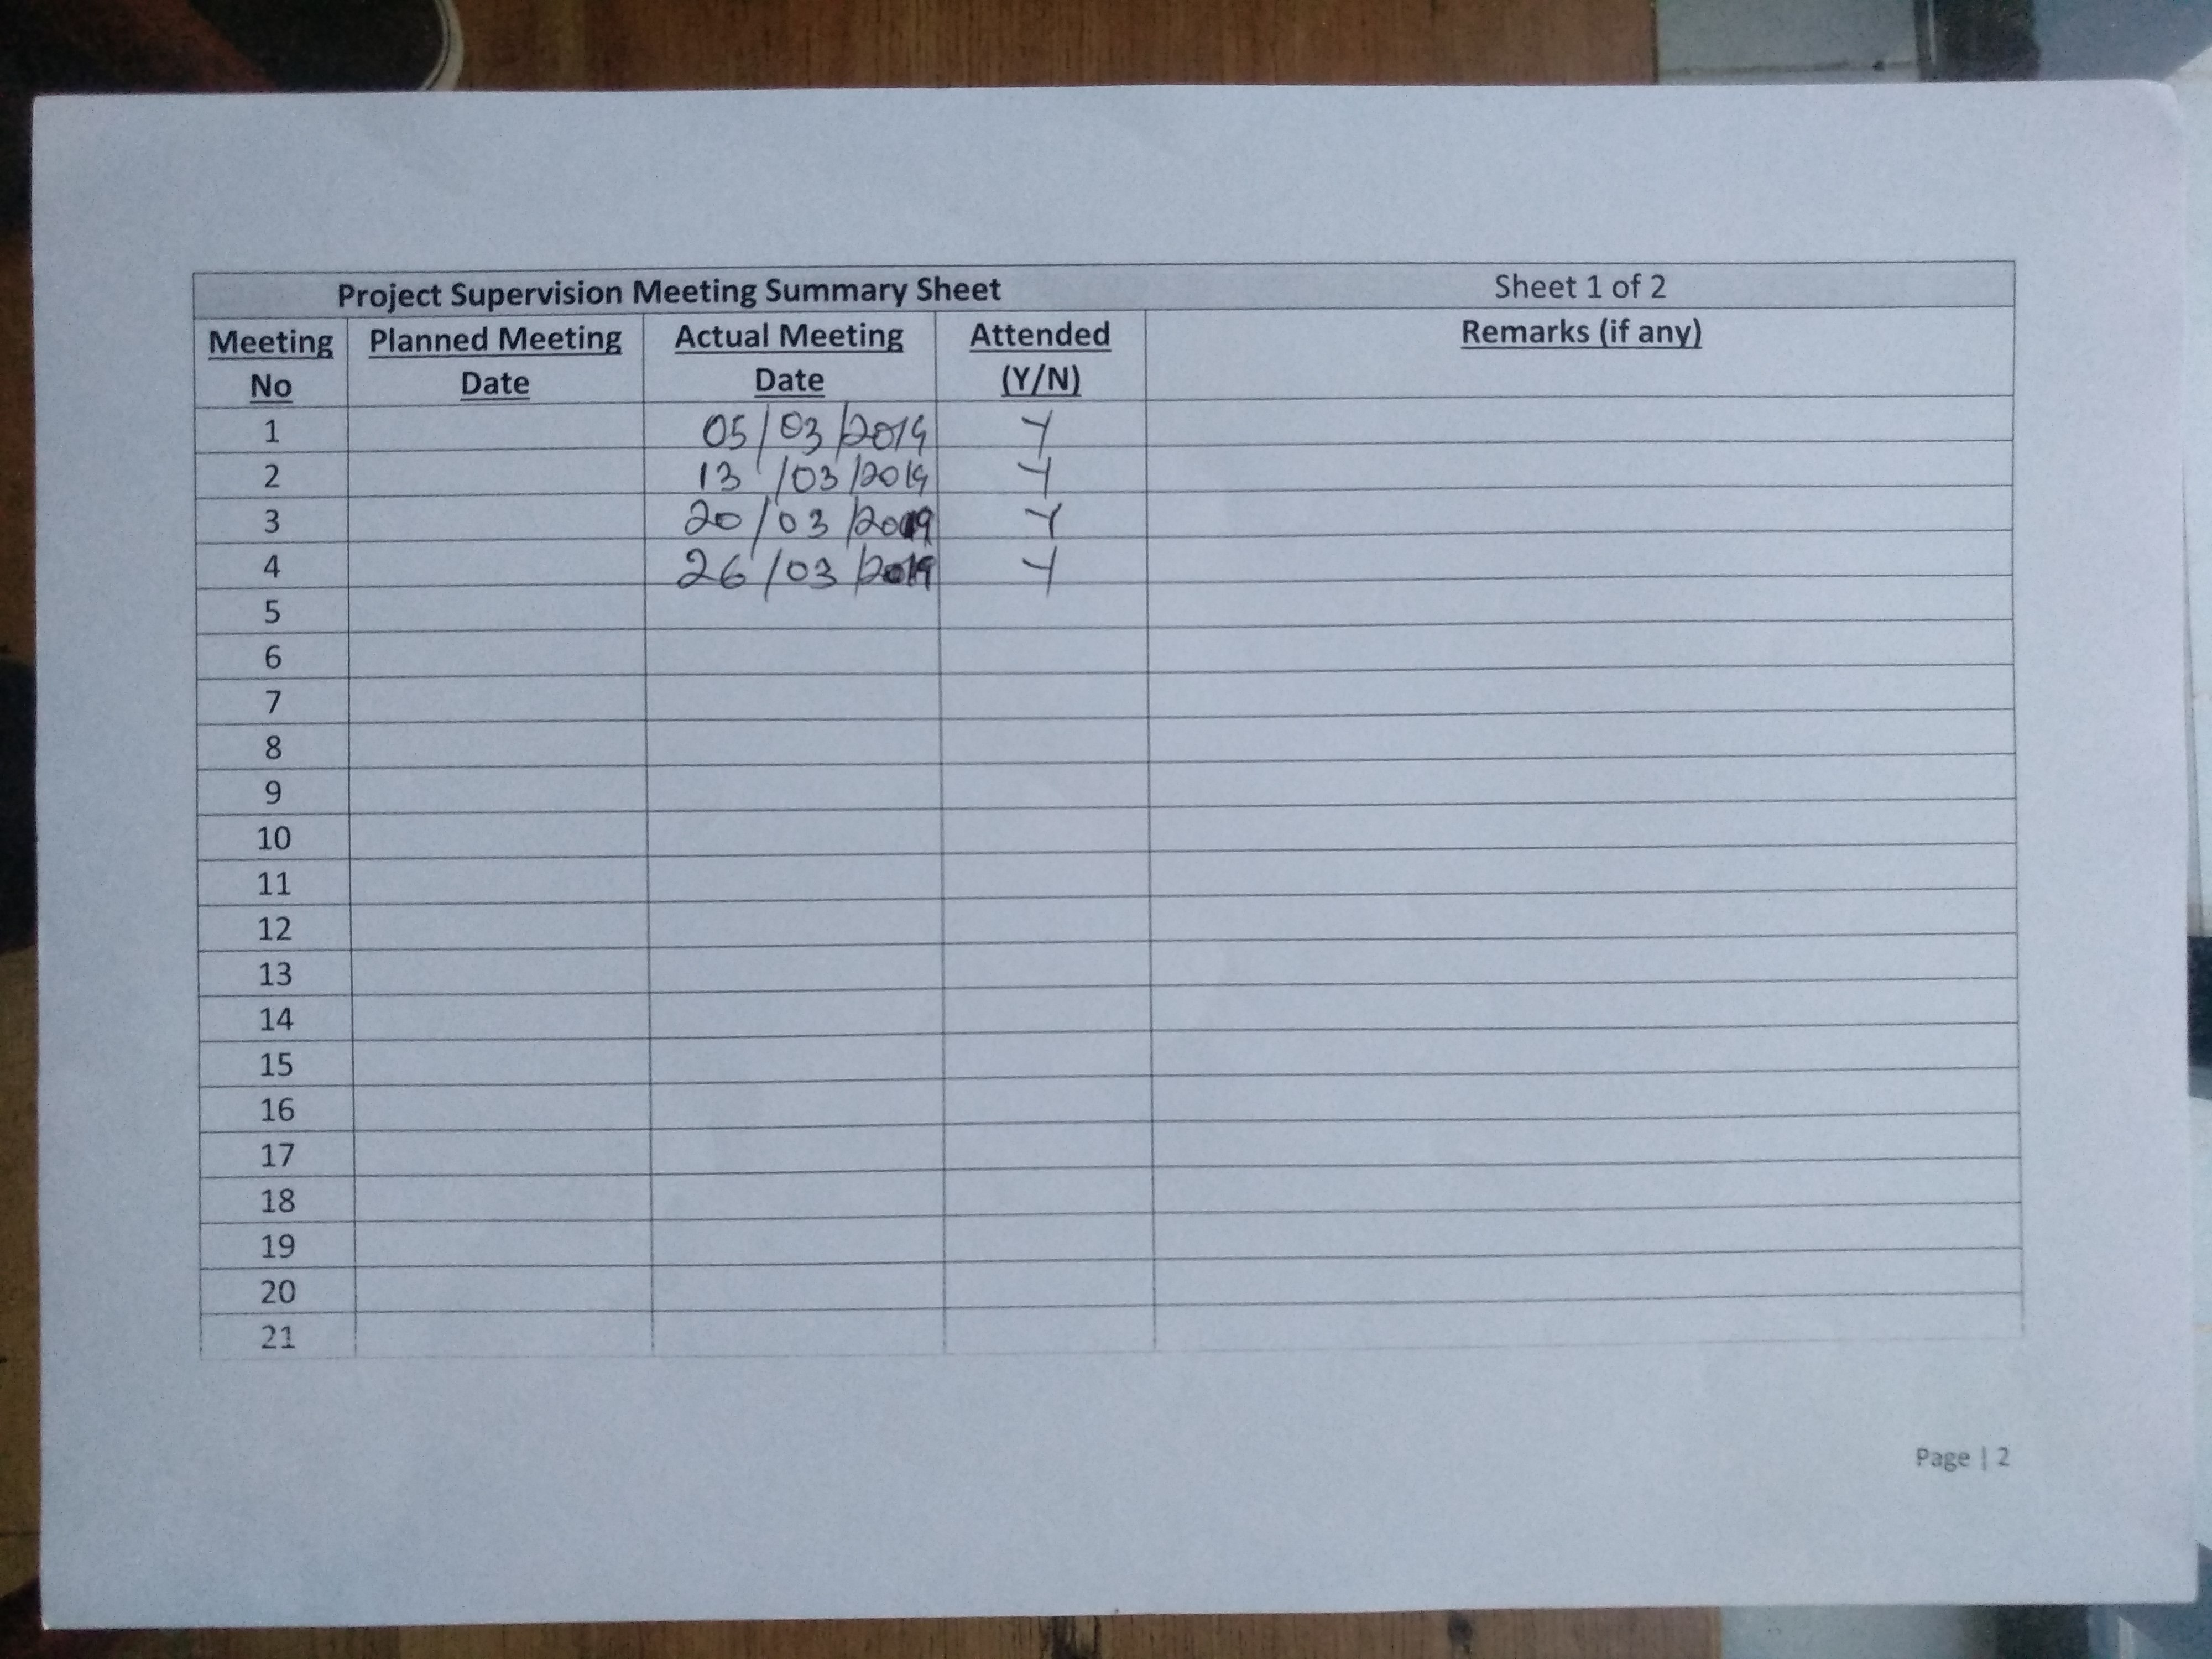 Project Supervision Meeting Summary Sheet Sheet 1 of 2
Meeting No Planned Meeting Date Actual Meeting Date Attended (Y/N) Remarks (if any)
1 05/03/2019 Y
2 13/03/2019 Y
3 20/03/2019 Y
4 26/03/2019 Y
5
6
7
8
9
10
11
12
13
14
15
16
17
18
19
20
21
Page | 2